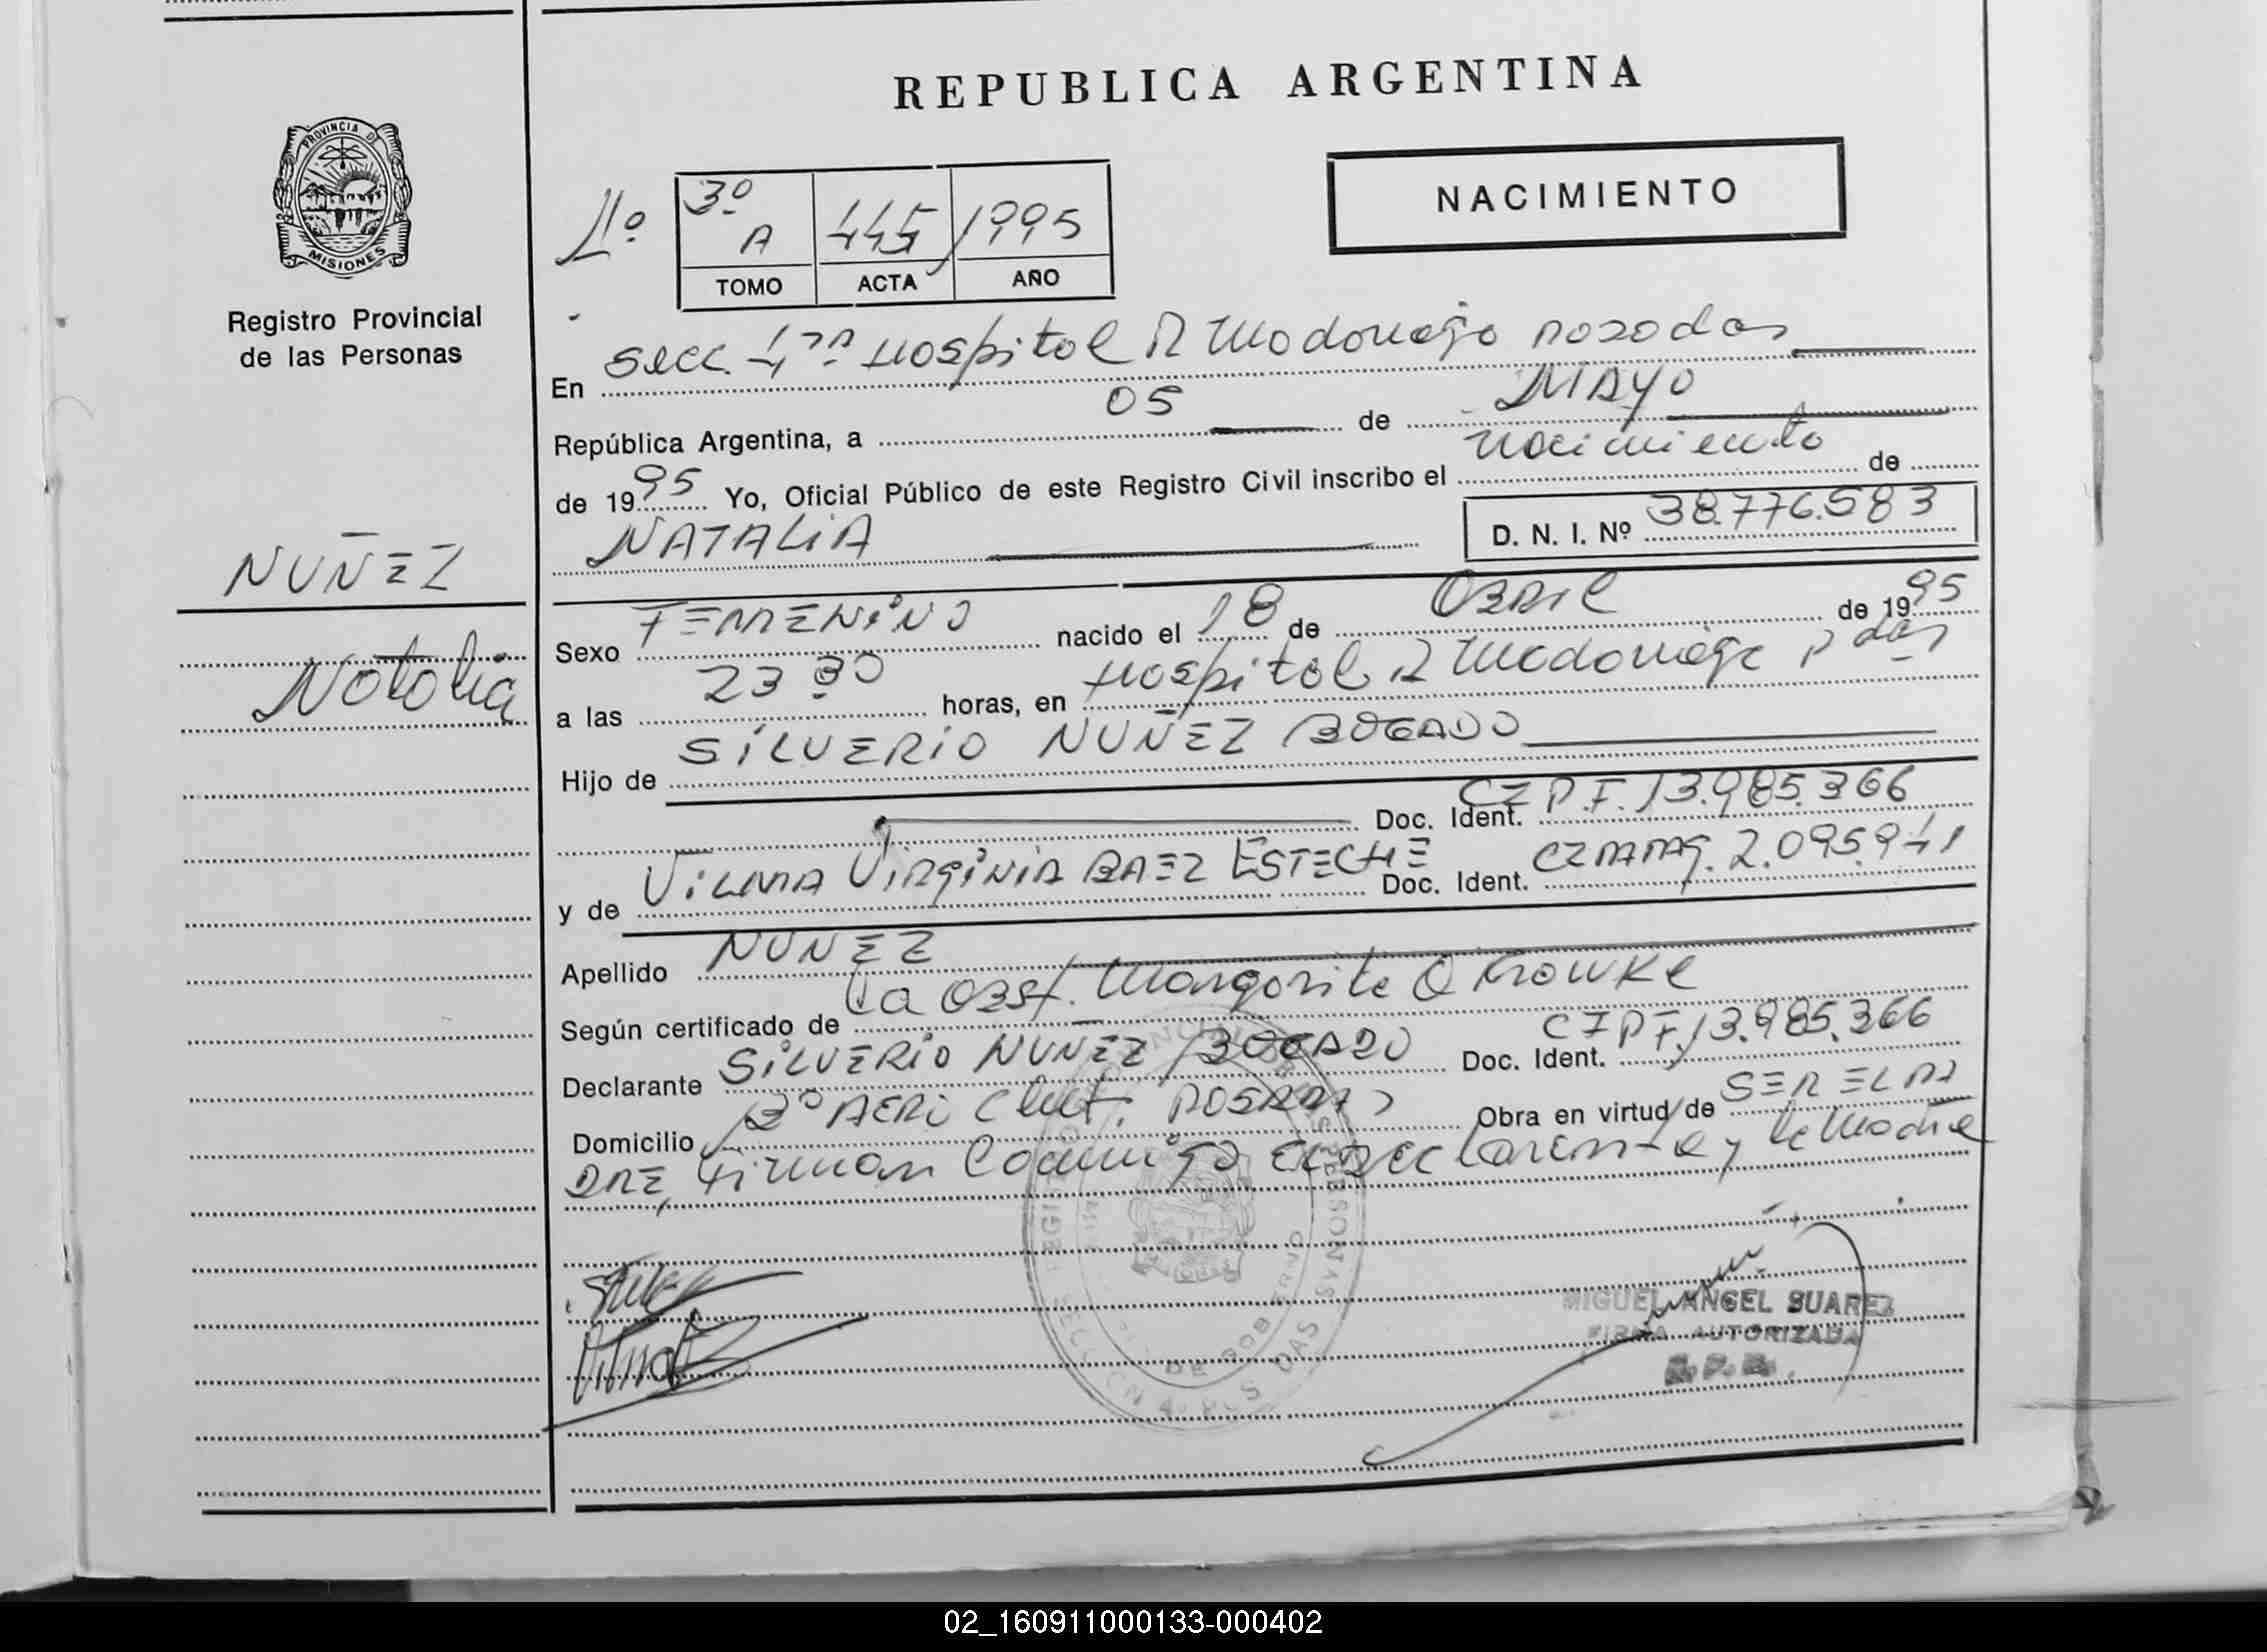 REPUBLICA ARGENTINA
PROVINCIA DE
MISIONES
Registro Provincial
de las Personas
Nº
3º A 445 1995
TOMO ACTA AÑO
NACIMIENTO
En Secc. 4ta Hospital R Madariaga Posadas
República Argentina, a 05 de MAYO
de 1995 Yo, Oficial Público de este Registro Civil inscribo el nacimiento de
NATALIA D. N. I. Nº 38.776.583
NUÑEZ
Natalia
Sexo FEMENINO nacido el 18 de Abril de 1995
a las 23 30 horas, en Hospital R Madariaga Pdas
Hijo de SILVERIO NUÑEZ BOGADO
Doc. Ident. CIPF. 13.985.366
y de VILMA VIRGINIA BAEZ ESTECHE Doc. Ident. 2.095.941
Apellido NUÑEZ
Según certificado de La Obst. Margarita
Declarante SILVERIO NUÑEZ BOGADO Doc. Ident. CIPF. 13.985.366
Domicilio Bº AERO Club. POSADAS Obra en virtud de SER EL PA
DRE, firman Conmigo el Declarante y la Madre
MIGUEL ANGEL SUAREZ
FIRMA AUTORIZADA
02_160911000133-000402